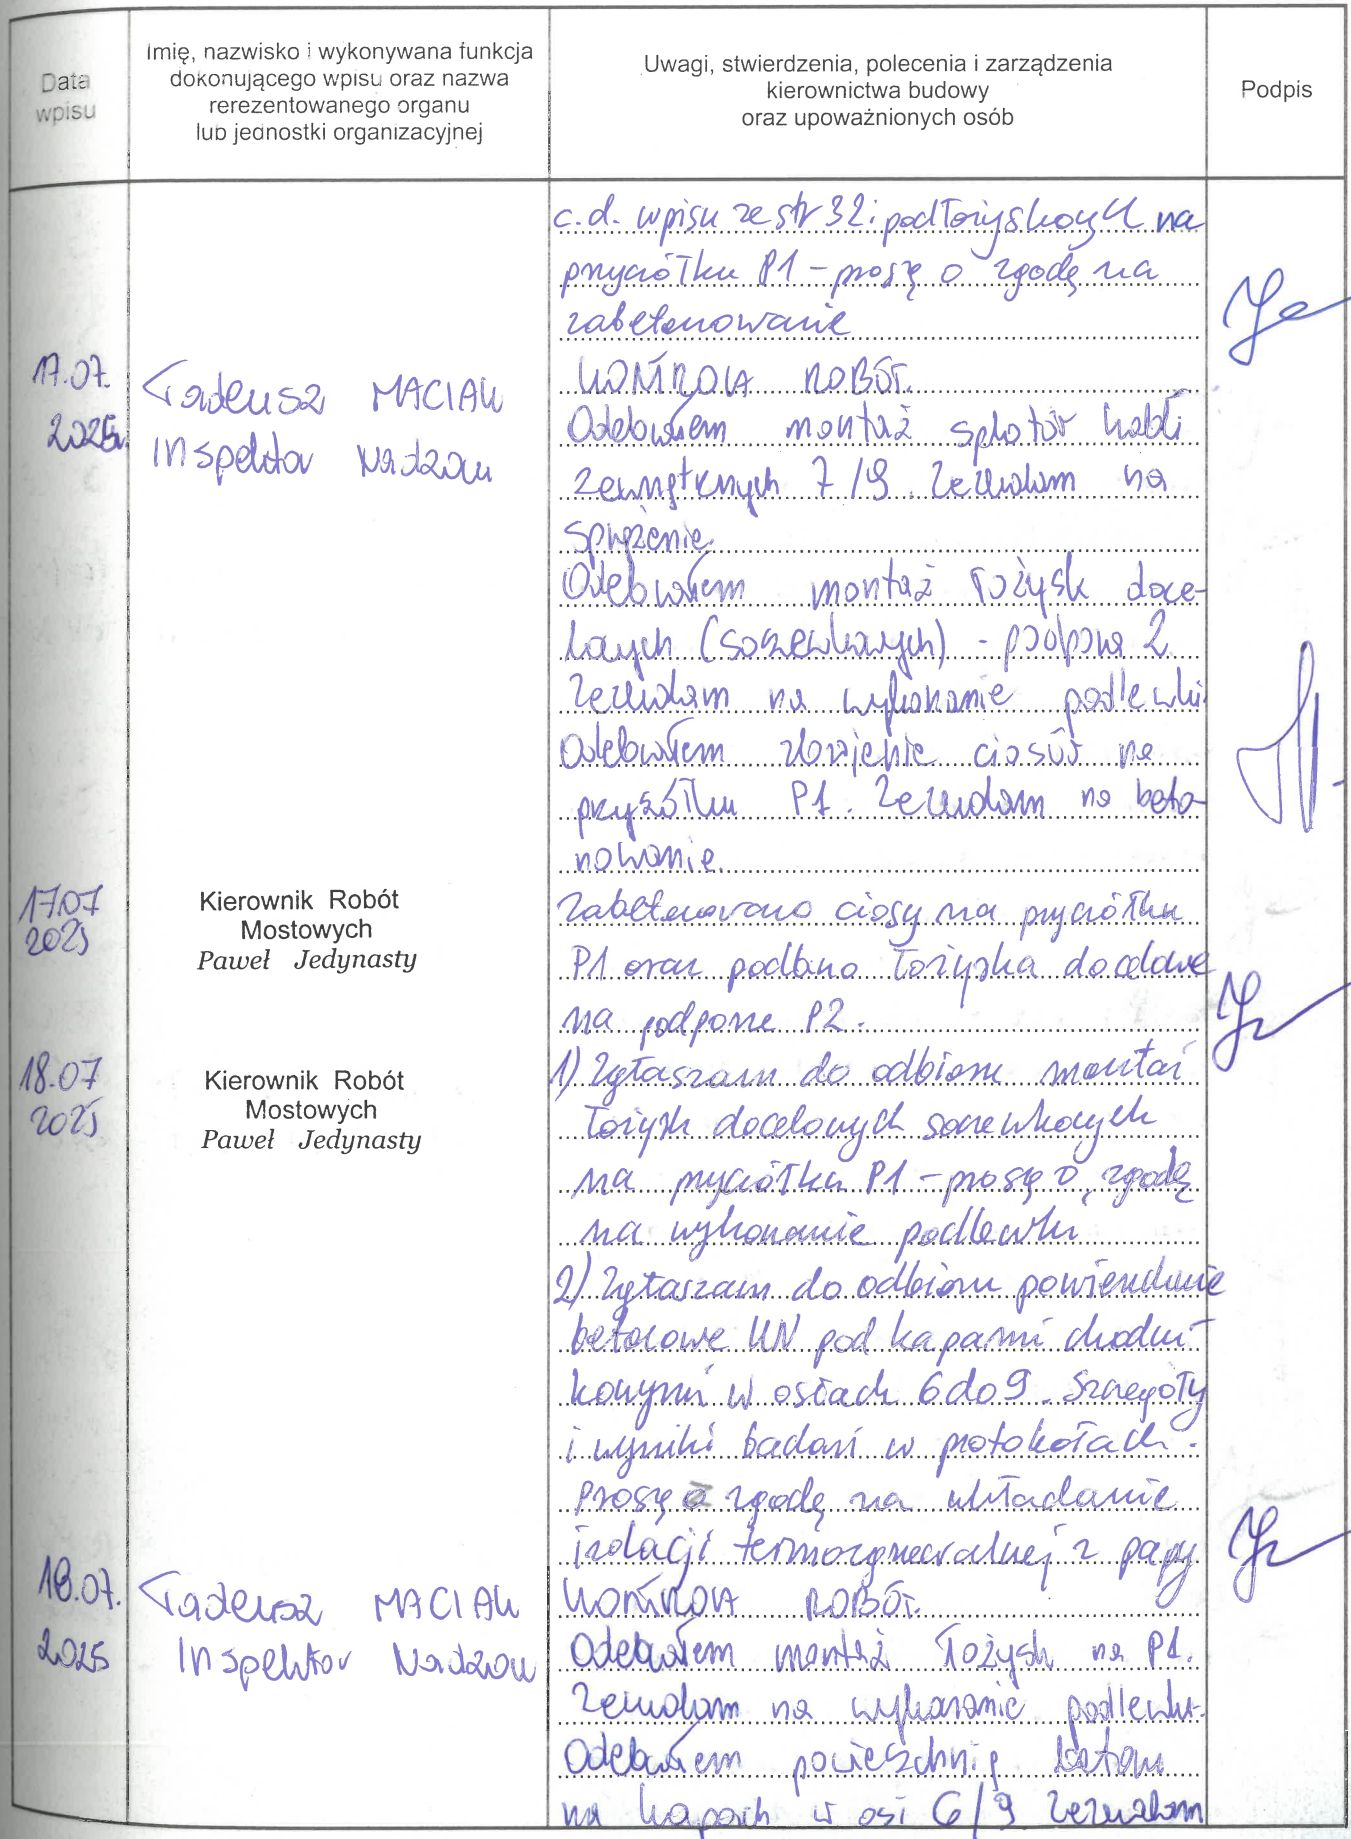 Data
wpisu
Imię, nazwisko i wykonywana funkcja
dokonującego wpisu oraz nazwa
rerezentowanego organu
lub jednostki organizacyjnej
Uwagi, stwierdzenia, polecenia i zarządzenia
kierownictwa budowy
oraz upoważnionych osób
Podpis
c.d. wpisu ze str 32: podłożyskowych na
przyczółku P1 – proszę o zgodę na
zabetonowanie
17.07.
2025r.
Tadeusz MACIAK
Inspektor Nadzoru
KONTROLA ROBÓT.
Odebrałem montaż splotów kabli
zewnętrznych 7/9. Zezwalam na
sprężenie.
Odebrałem montaż łożysk doce-
lowych (soczewkowych) - podpora 2
Zezwalam na wykonanie podlewki.
Odebrałem zbrojenie ciosów na
przyczółku P1. Zezwalam na beto-
nowanie.
17.07
2025
Kierownik Robót
Mostowych
Paweł Jedynasty
Zabetonowano ciosy na przyczółku
P1 oraz podlano łożyska docelowe
na podporze P2.
18.07
2025
Kierownik Robót
Mostowych
Paweł Jedynasty
1) Zgłaszam do odbioru montaż
łożysk docelowych soczewkowych
na przyczółku P1 – proszę o zgodę
na wykonanie podlewki
2) Zgłaszam do odbioru powierzchnie
betonowe UN pod kapami chodni-
kowymi w osiach 6 do 9. Szczegóły
i wyniki badań w protokołach.
Proszę o zgodę na układanie
izolacji termozgrzewalnej z papy
18.07.
2025
Tadeusz MACIAK
Inspektor Nadzoru
KONTROLA ROBÓT.
Odebrałem montaż łożysk na P1.
Zezwalam na wykonanie podlewki.
Odebrałem powierzchnię betonu
na kapach w osi 6/9 Zezwalam